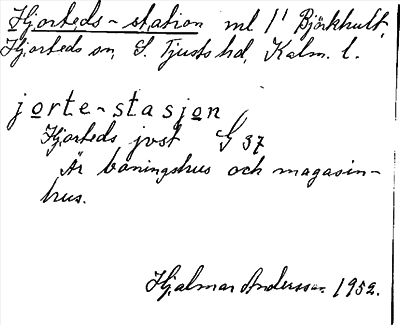 Hjorteds-station ml 1' Björkhult,
Hjorteds sn, S. Tjusts hd, Kalm. l.
jorte-stasjon
Hjorteds jvst G 37
Är boningshus och magasin-
hus.
Hjalmar Andersson 1952.